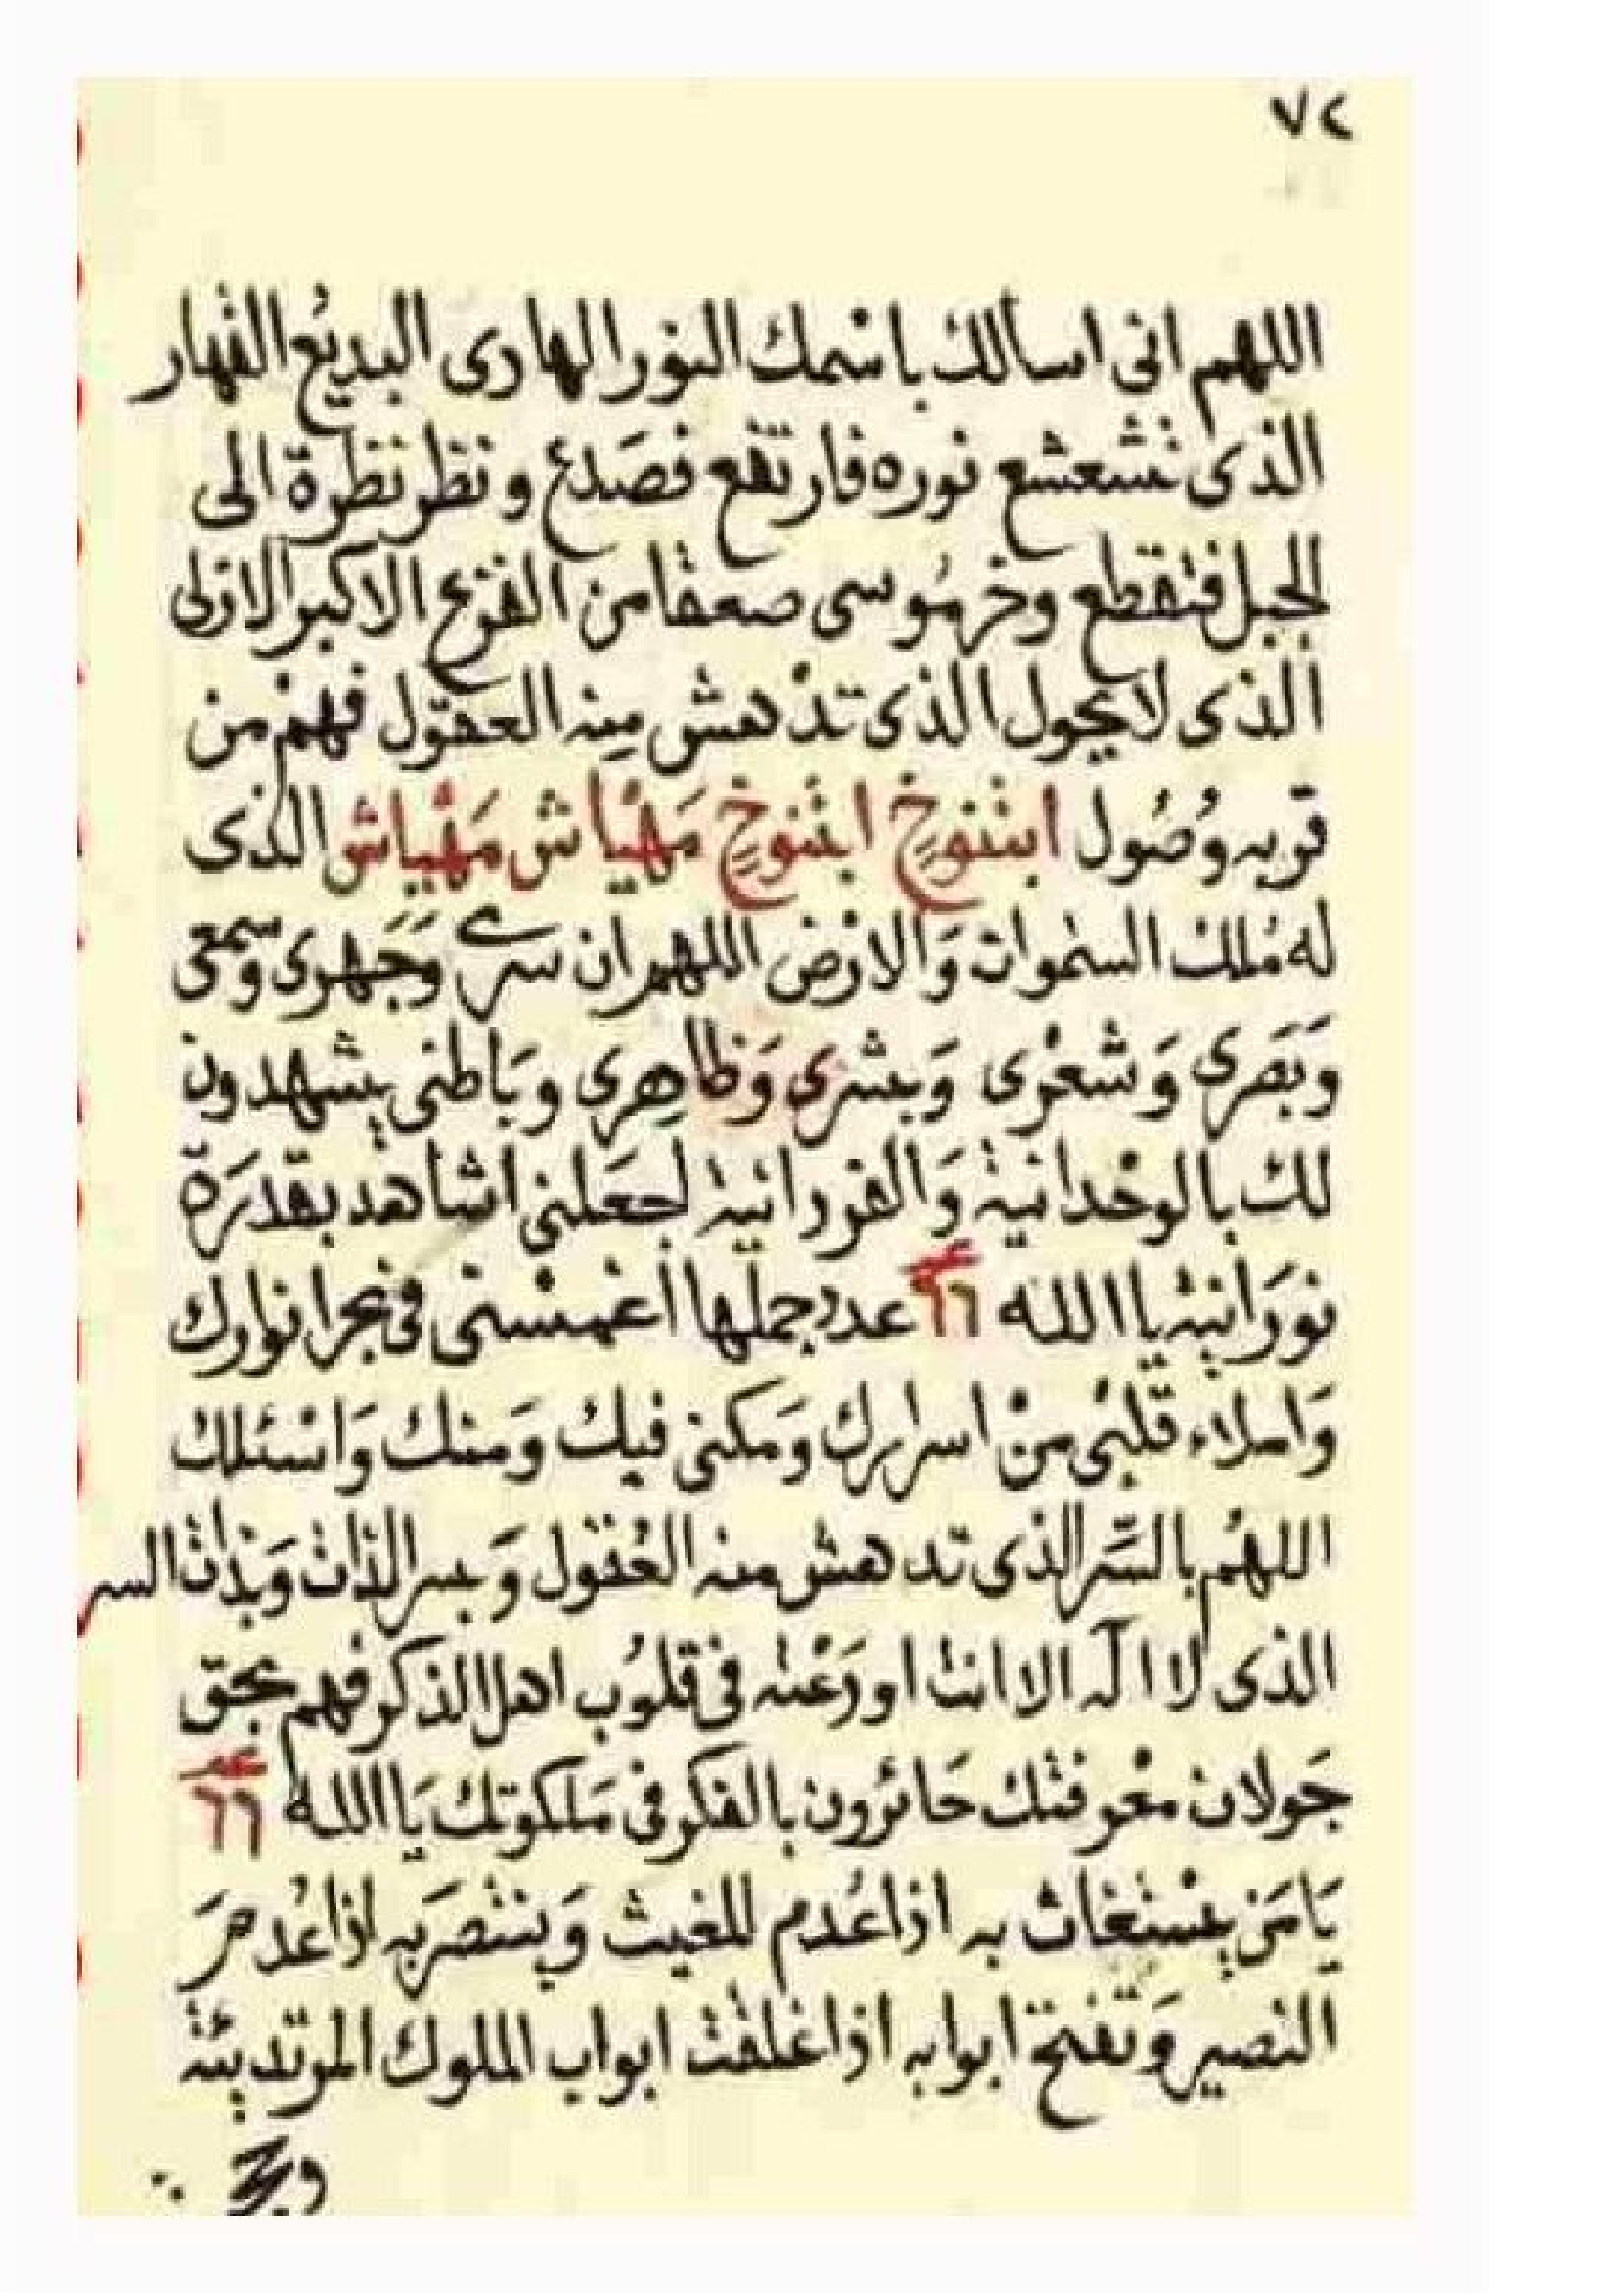 ٧٢
اللهم انى اسالك باسمك النور الهادى البديع القهار
الذى تشعشع نوره فارتفع فصدع ونظر نظرة الى
الجبل فتقطع وخر مُوسى صعقا من الفزع الاكبر الازلى
الذى لا يحول الذى تدهش مِنه العقول فهم من
قربه وصُول ابثنوخ ابثنوخ مَهْياش مَهْياش الذى
له مُلك السموات وَالارض اللهم ان سرى وَجَهرى وسمعى
وَبَصَرى وَشعْرى وَبشرى وَظاهِرى وبَاطنى يشهدون
لك بالوحْدانية وَالفردانية اجعَلنى اشاهد بقدرَة
نورَانيته يا الله ٦٦ عدد جملها أغمسْنى فى بحر انوارك
وَاملاء قلبْى منْ اسرارك وَمكنى فيك وَمنك وَاسْئلك
اللهُم بالسِّر الذى تدهش منه العُقول وَبسر الذات وَبذات السر
الذى لا اله الا انت اودَعْته فى قلوُب اهل الذكر فهم بحق
جَولان معْرفتك حَائرون بالفكر فى مَلكوتك يَا الله ٦٦
يَامَن يسْتغاث به اذا عُدم المغيث وَينتصَر به اذا عُدم
النصير وَتفتح ابوابه اذا غلقت ابواب الملوك المرتدية